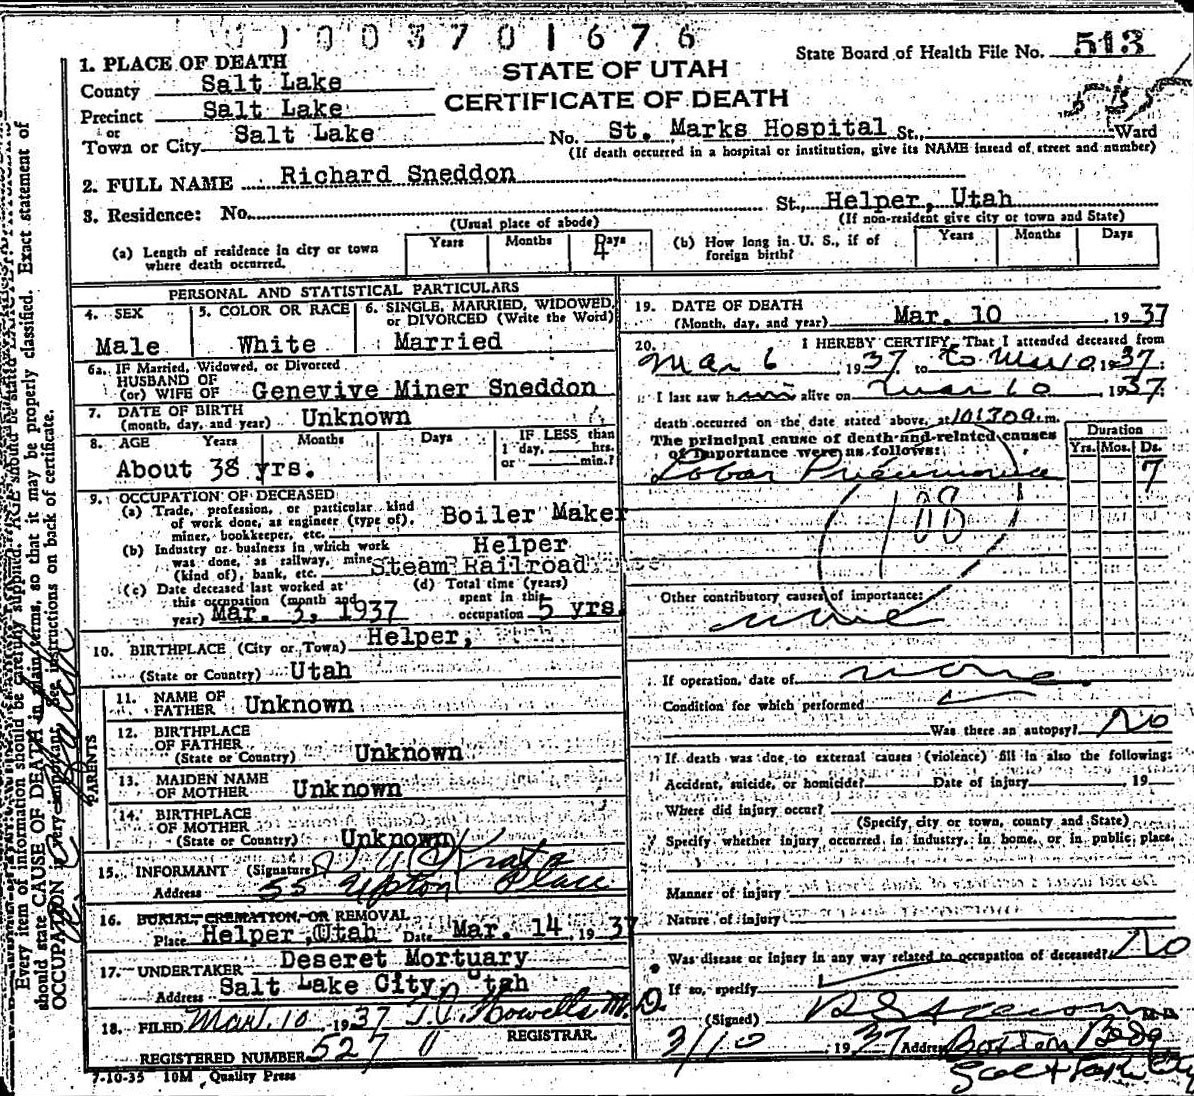 1003701676
State Board of Health File No. 513
1. PLACE OF DEATH
STATE OF UTAH
County Salt Lake
CERTIFICATE OF DEATH
Precinct Salt Lake
or
Town or City Salt Lake No. St. Marks Hospital St., Ward
(If death occurred in a hospital or institution, give its NAME insead of street and number)
2. FULL NAME Richard Sneddon
3. Residence: No. St., Helper, Utah
(Usual place of abode) (If non-resident give city or town and State)
(a) Length of residence in city or town where death occurred. Years Months Days 4
(b) How long in U. S., if of foreign birth? Years Months Days
PERSONAL AND STATISTICAL PARTICULARS
4. SEX 5. COLOR OR RACE 6. SINGLE, MARRIED, WIDOWED, or DIVORCED (Write the Word)
Male White Married
6a. IF Married, Widowed, or Divorced
HUSBAND OF
(or) WIFE OF Genevive Miner Sneddon
7. DATE OF BIRTH
(month, day, and year) Unknown
8. AGE Years Months Days IF LESS than
1 day, hrs.
or min.?
About 38 yrs.
9. OCCUPATION OF DECEASED
(a) Trade, profession, or particular kind
of work done, as engineer (type of), Boiler Maker
miner, bookkeeper, etc.
(b) Industry or business in which work Helper
was done, as railway, mine
(kind of), bank, etc. Steam Railroad
(c) Date deceased last worked at (d) Total time (years)
this occupation (month and spent in this
year) Mar. 3, 1937 occupation 5 yrs.
10. BIRTHPLACE (City or Town) Helper,
(State or Country) Utah
PARENTS
11. NAME OF
FATHER Unknown
12. BIRTHPLACE
OF FATHER
(State or Country) Unknown
13. MAIDEN NAME
OF MOTHER Unknown
14. BIRTHPLACE
OF MOTHER
(State or Country) Unknown
15. INFORMANT (Signature)
Address 55 Upton Place
16. BURIAL, CREMATION, OR REMOVAL
Place Helper, Utah Date Mar. 14, 1937
17. UNDERTAKER Deseret Mortuary
Address Salt Lake City, Utah
18. FILED Mar. 10, 1937 T.J. Howells M.D.
REGISTRAR.
REGISTERED NUMBER 527
7-10-35 10M Quality Press
19. DATE OF DEATH
(Month, day, and year) Mar. 10, 1937
20. I HEREBY CERTIFY, That I attended deceased from
Mar 6, 1937, to Mar 10, 1937
I last saw him alive on Mar 10, 1937
death occurred on the date stated above, at m.
The principal cause of death and related causes
of importance were as follows: Duration
Yrs. Mos. Ds.
Lobar Pneumonia 7
108
Other contributory causes of importance:
none
If operation, date of none.
Condition for which performed
Was there an autopsy? No
If death was due to external causes (violence) fill in also the following:
Accident, suicide, or homicide? Date of injury 19
Where did injury occur?
(Specify city or town, county and State)
Specify whether injury occurred in industry, in home, or in public place.
Manner of injury
Nature of injury
Was disease or injury in any way related to occupation of deceased? No
If so, specify
(Signed) M.D.
3/10, 1937 Address Boston Bldg
Salt Lake City
Every item of information should be carefully supplied. AGE should be stated EXACTLY.
should state CAUSE OF DEATH in plain terms, so that it may be properly classified. Exact statement of
OCCUPATION is very important. See instructions on back of certificate.